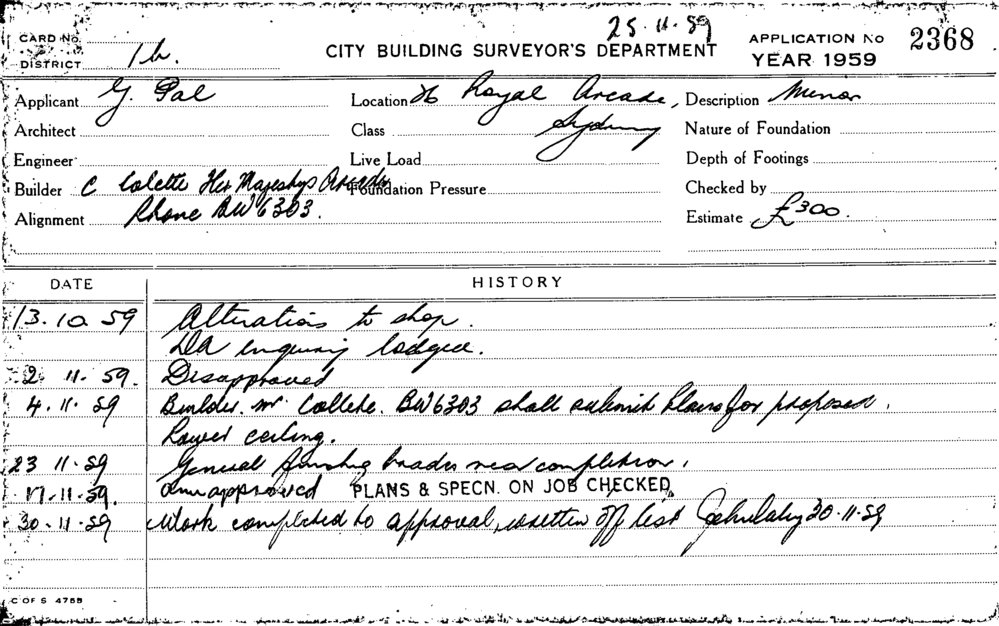 25.11.59
CARD No.
CITY BUILDING SURVEYOR'S DEPARTMENT
APPLICATION No 2368
DISTRICT 1b.
YEAR 1959
Applicant G. Pal
Location 26 Royal Arcade,
Description Minor
Architect
Class Sydney
Nature of Foundation
Engineer
Live Load
Depth of Footings
Builder C Colette Her Majestys Arcade
Foundation Pressure
Checked by
Alignment Phone BW6303.
Estimate £300.
DATE HISTORY
13.10.59 Alterations to shop.
DA enquiry lodged.
2 11.59. Disapproved
4.11.59 Builder. Mr Collete. BW6303 shall submit plans for proposed
lower ceiling.
23 11.59 General finishing trades near completion.
17.11.59. approved PLANS & SPECN. ON JOB CHECKED
30.11.59 Work completed to approval, written off list 30.11.59
C OF S 4788